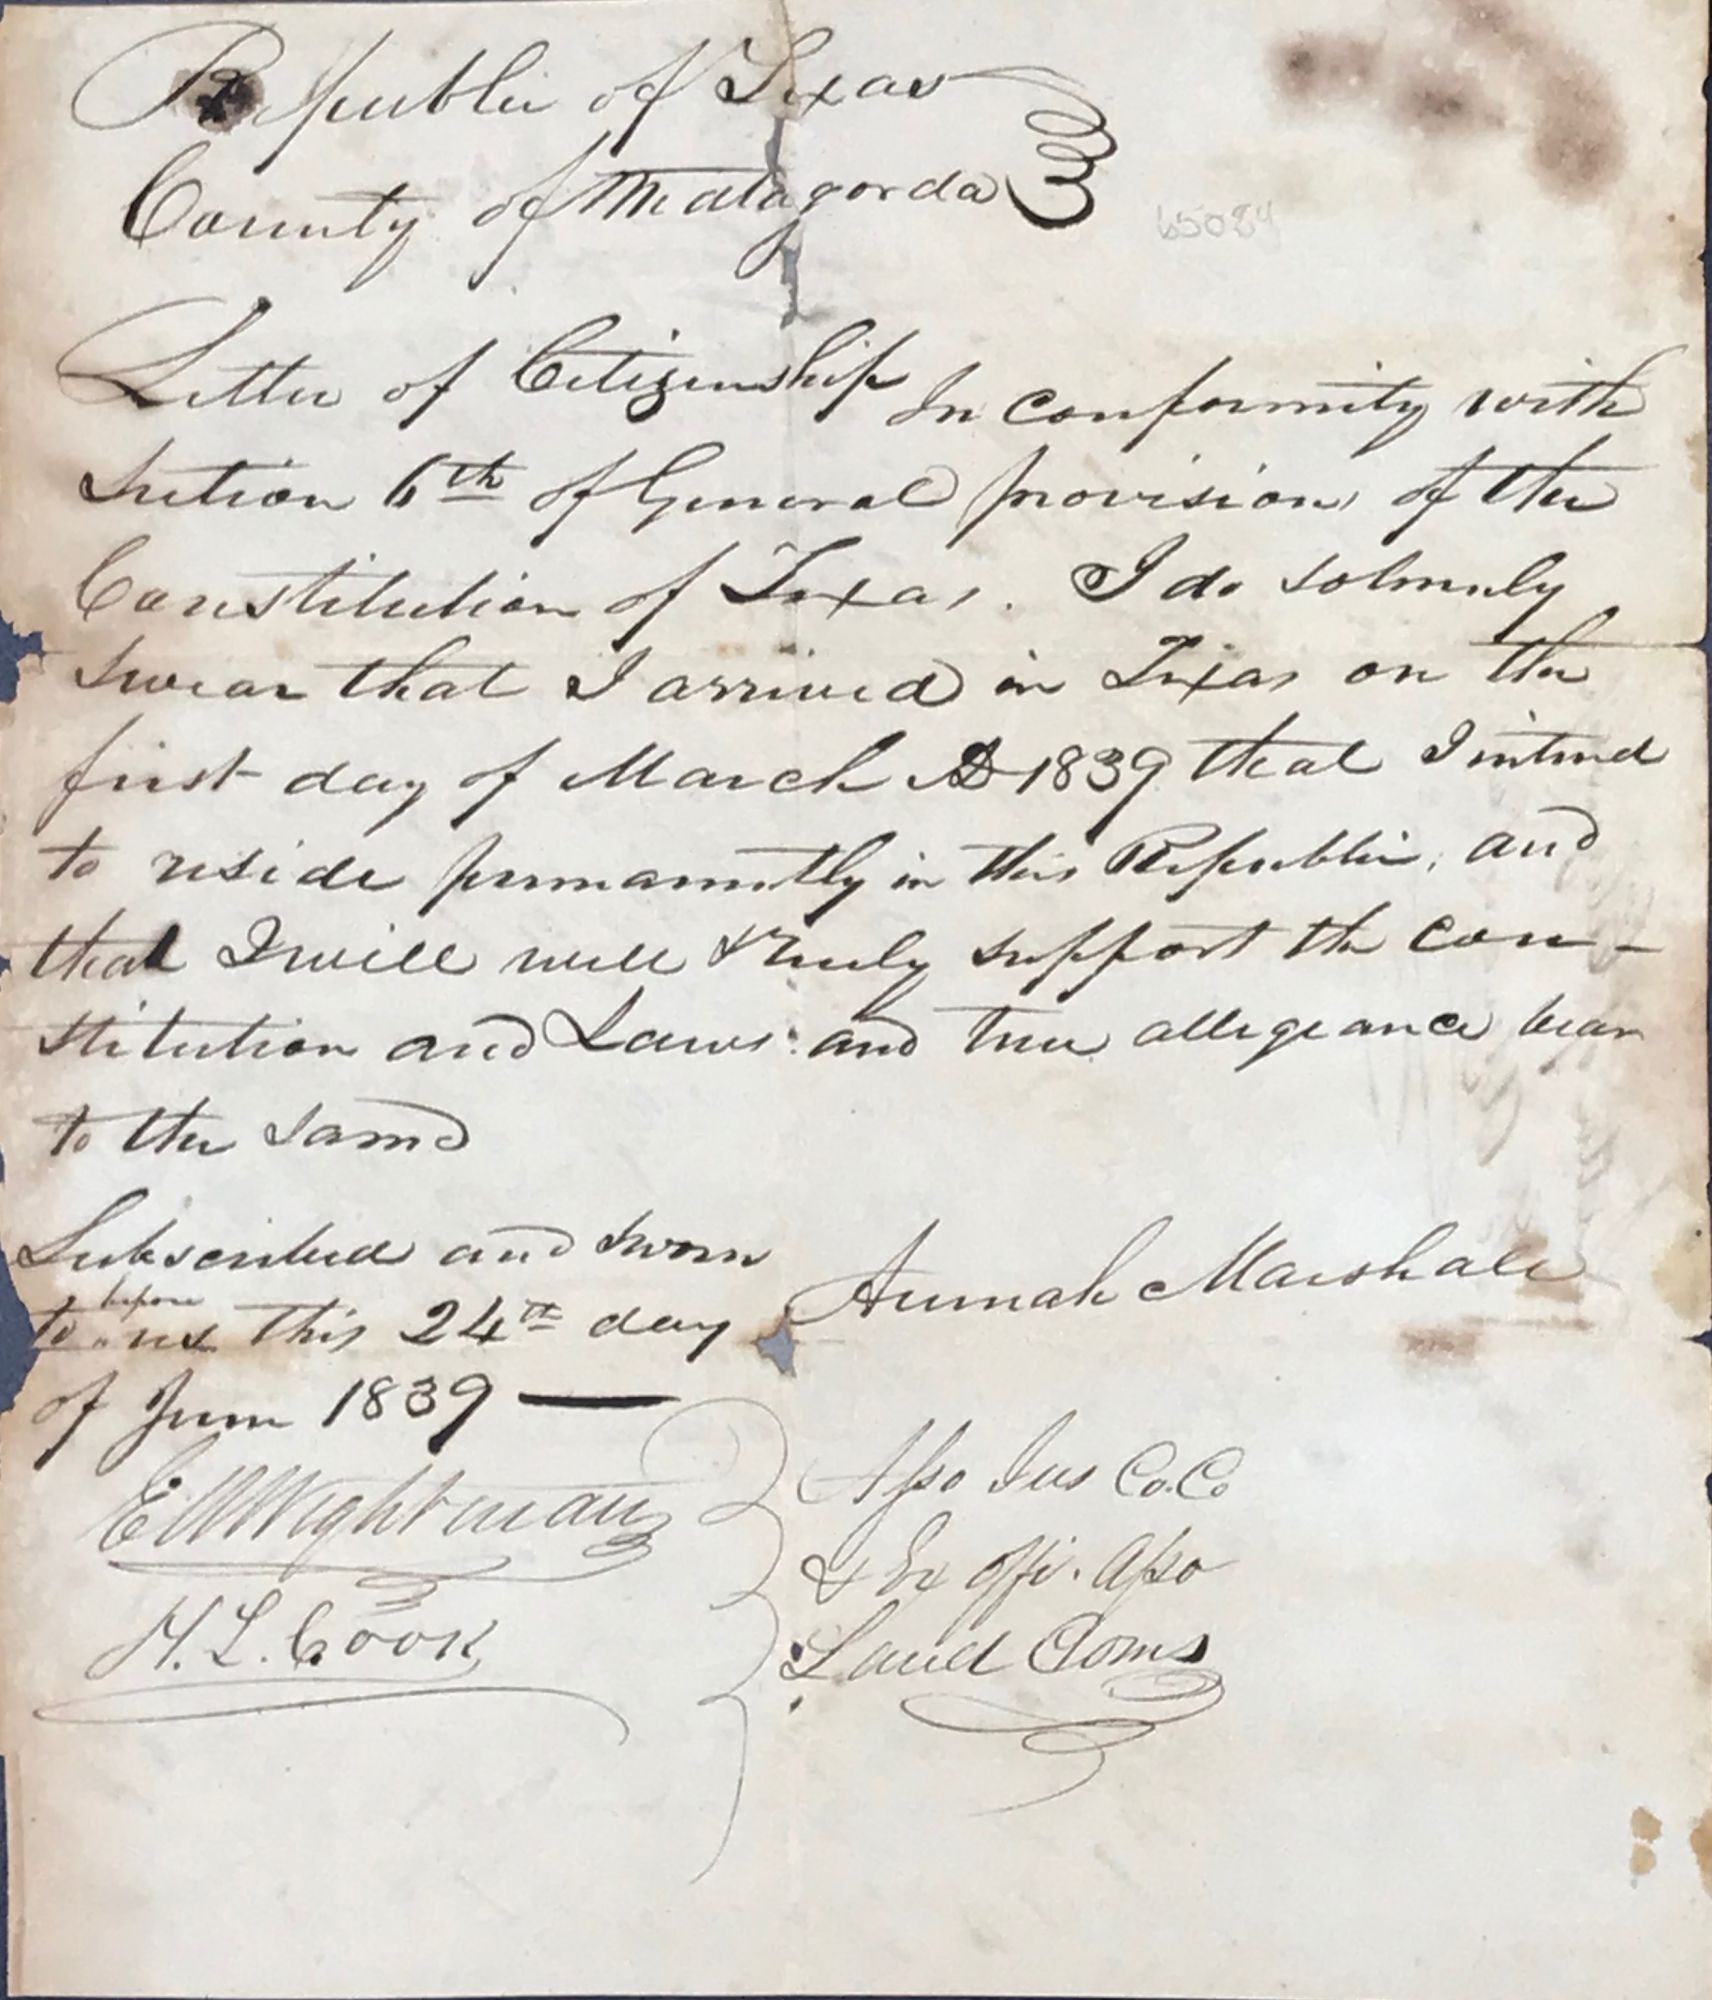 Republic of Texas
County of Matagorda
65084
Letter of Citizenship In conformity with
Section 6th of General provisions of the
Constitution of Texas. I do solmnly
swear that I arrived in Texas on the
first day of March AD 1839 that I intend
to reside permanently in this Republic, and
that I will well & truly support the con-
stitution and Laws and true allegeance bear
to the same
Subscribed and sworn
to before us this 24th day
of June 1839 —
Marshall
E W Wightman
H. L. Cook
Asso Jus Co. Co
& Ex offi. Asso
Land Coms